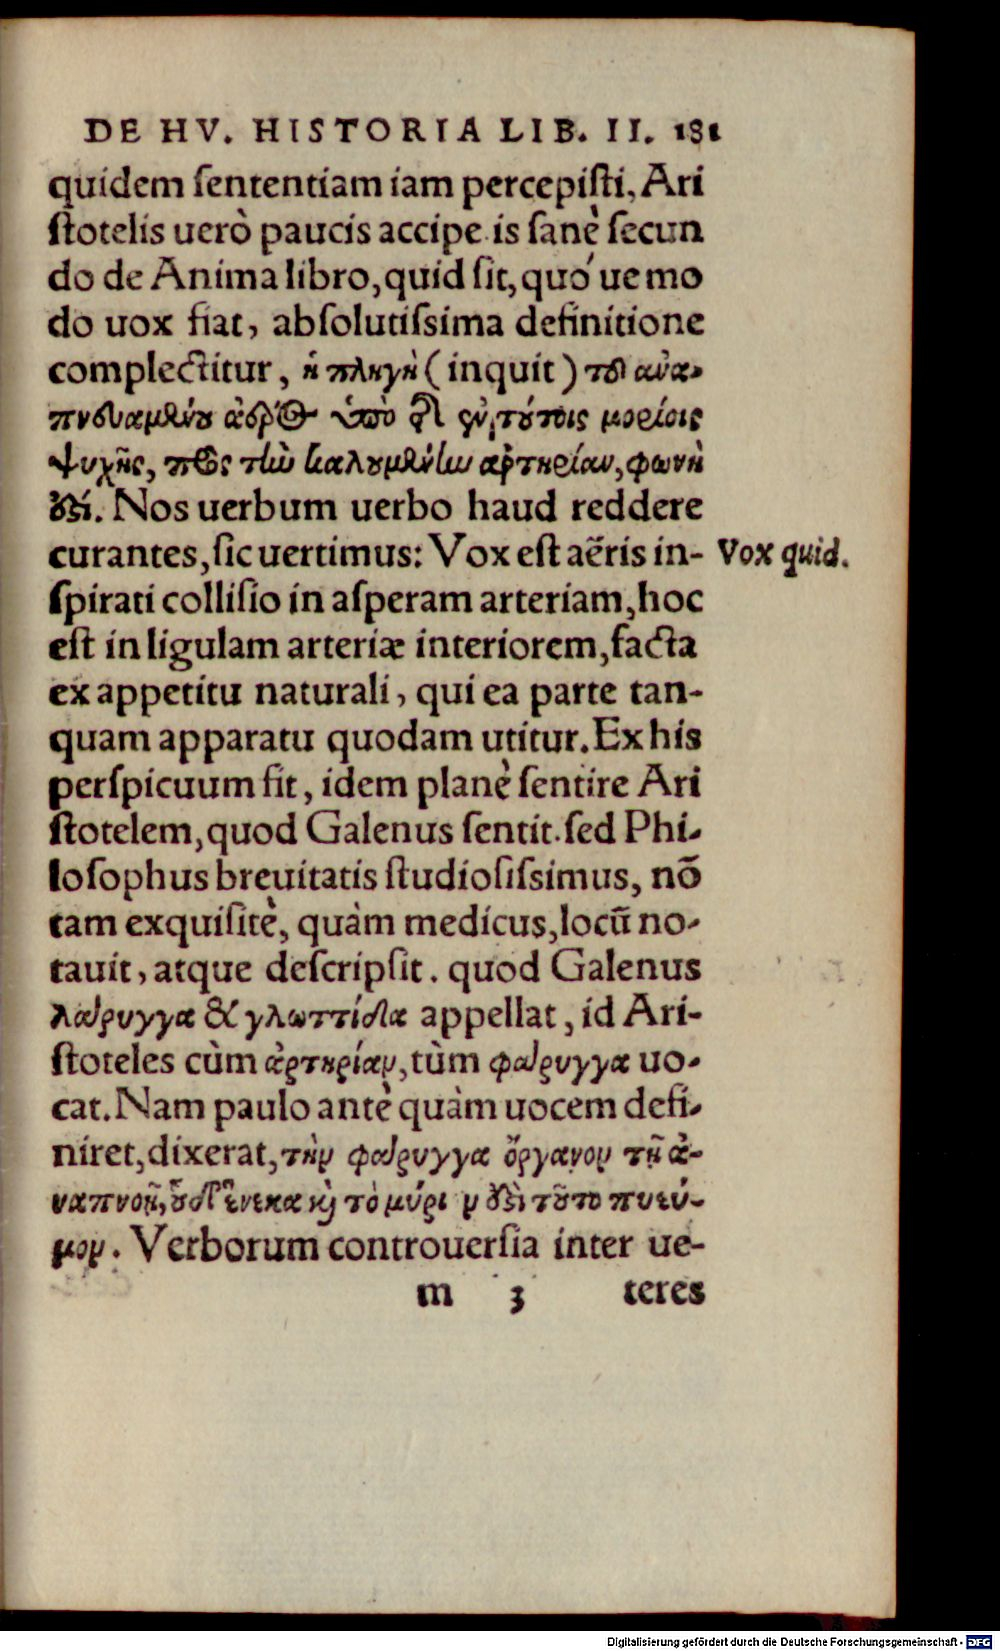 DE HV. HISTORIA LIB. II. 181
quidem ſententiam iam percepiſti, Ari
ſtotelis uerò paucis accipe. is ſanè ſecun
do de Anima libro, quid ſit, quóue mo
do uox fiat, abſolutiſsima definitione
complectitur, ἡ πληγὴ (inquit) τοῦ ἀνα-
πνευσαμένου ἀέρος ὑπὸ τῆς ἐν τούτοις μορίοις
ψυχῆς, πρὸς τὴν καλουμένην ἀρτηρίαν, φωνή
ἐστί. Nos uerbum uerbo haud reddere
curantes, ſic uertimus: Vox eſt aëris in-
Vox quid.
ſpirati colliſio in aſperam arteriam, hoc
eſt in ligulam arteriæ interiorem, facta
ex appetitu naturali, qui ea parte tan-
quam apparatu quodam utitur. Ex his
perſpicuum fit, idem planè ſentire Ari
ſtotelem, quod Galenus ſentit. ſed Phi-
loſophus breuitatis ſtudioſiſsimus, nõ
tam exquiſitè, quàm medicus, locũ no-
tauit, atque deſcripſit. quod Galenus
λάρυγγα & γλωττίδα appellat, id Ari-
ſtoteles cùm ἀρτηρίαν, tùm φάρυγγα uo-
cat. Nam paulo antè quàm uocem defi-
niret, dixerat, τὴν φάρυγγα ὄργανον τῇ ἀ-
ναπνοῇ, οὗ δ' ἕνεκα καὶ τὸ μόριον ἐστὶ τοῦτο πνεύ-
μον. Verborum controuerſia inter ue-
m 3 teres
Digitalisierung gefördert durch die Deutsche Forschungsgemeinschaft - DFG